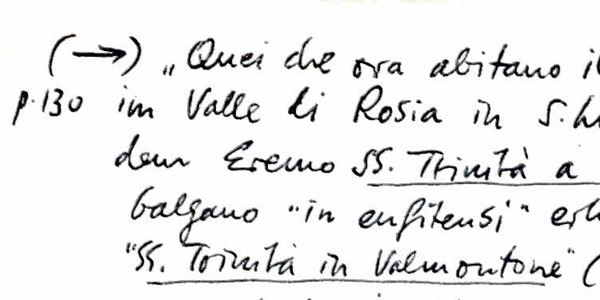 (→) „Quei che ora abitano i
p. 130 im Valle di Rosia in S.
dem Eremo SS. Trinità a
Galgano "in enfitensi"
"SS. Trinità in Valmontone" (